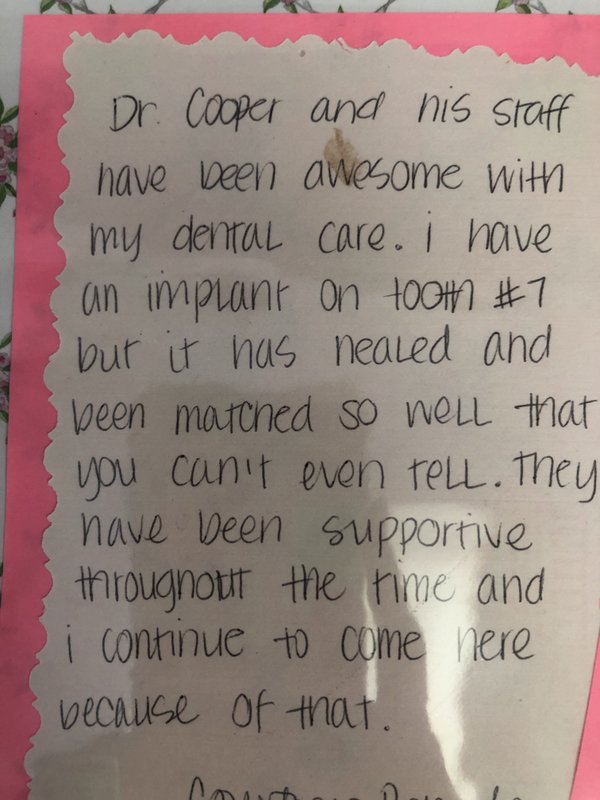 Dr. Cooper and his staff
have been awesome with
my dental care. i have
an implant on tooth #7
but it has healed and
been matched so well that
you can't even tell. They
have been supportive
throughout the time and
i continue to come here
because of that.